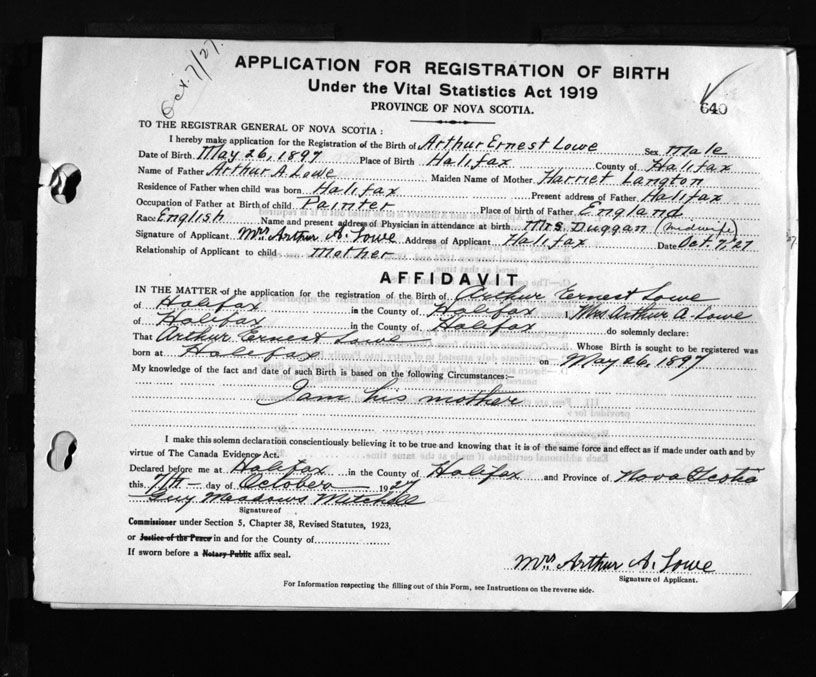 Oct. 7/27.
APPLICATION FOR REGISTRATION OF BIRTH
Under the Vital Statistics Act 1919
PROVINCE OF NOVA SCOTIA.
640
TO THE REGISTRAR GENERAL OF NOVA SCOTIA :
I hereby make application for the Registration of the Birth of Arthur Ernest Lowe Sex Male
Date of Birth May 26, 1897 Place of Birth Halifax County of Halifax
Name of Father Arthur A. Lowe Maiden Name of Mother Harriet Langton
Residence of Father when child was born Halifax Present address of Father Halifax
Occupation of Father at Birth of child Painter Place of birth of Father England
Race English Name and present address of Physician in attendance at birth Mrs. Duggan (midwife)
Signature of Applicant Mrs Arthur A. Lowe Address of Applicant Halifax Date Oct 7/27
Relationship of Applicant to child Mother
AFFIDAVIT
IN THE MATTER of the application for the registration of the Birth of Arthur Ernest Lowe
of Halifax in the County of Halifax I Mrs Arthur A. Lowe
of Halifax in the County of Halifax do solemnly declare:
That Arthur Ernest Lowe Whose Birth is sought to be registered was
born at Halifax on May 26, 1897
My knowledge of the fact and date of such Birth is based on the following Circumstances:—
I am his mother
I make this solemn declaration conscientiously believing it to be true and knowing that it is of the same force and effect as if made under oath and by
virtue of The Canada Evidence Act.
Declared before me at Halifax in the County of Halifax and Province of Nova Scotia
this 7th day of October 1927
Guy Meadows Mitchell
Signature of
Commissioner under Section 5, Chapter 38, Revised Statutes, 1923,
or Justice of the Peace in and for the County of
If sworn before a Notary Public affix seal.
Mrs Arthur A. Lowe
Signature of Applicant.
For Information respecting the filling out of this Form, see Instructions on the reverse side.